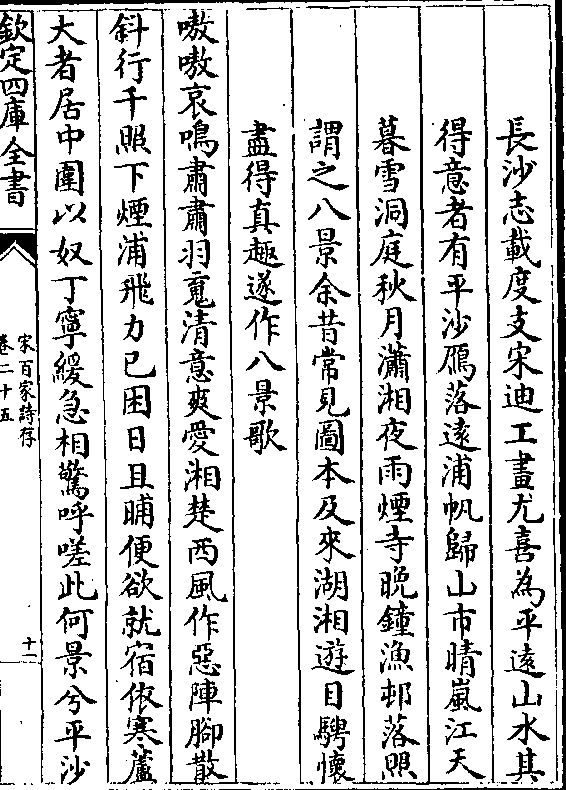 長沙志載度支宋迪工畫尤喜為平逺山水其
得意者有平沙鴈落逺浦帆歸山市晴嵐江天
暮雪洞庭秋月瀟湘夜雨煙寺晚鐘漁邨落照
謂之八景余昔常見圖本及來湖湘遊目騁懷
盡得真趣遂作八景歌
嗷嗷哀鳴肅肅羽寛清意爽愛湘楚西風作惡陣腳散
斜行千照下煙浦飛力已困日且晡便欲就宿依寒蘆
大者居中圍以奴丁寧緩急相驚呼嗟此何景兮平沙
欽定四庫全書
宋百家詩存
卷二十五
十一